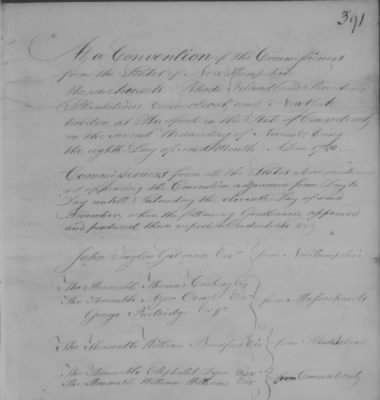 391
At a Convention of the Commissioners
from the States of New Hampshire
Massachusetts Rhode Island and Providence
Plantations Connecticut and New York
holden at Hartford in the State of Connecticut
on the second Wednesday of November being
the eighth Day of said Month A Dom 1780
Commissioners from all the States
appointing the Convention adjourned from Day to
Day untill Saturday the eleventh Day of said
November, when the following Gentlemen appeared
and produced their respective Credentials
John Taylor Gilman Esqr from New Hampshire
The Honorable Thomas Cushing Esq
The Honorable Azor Orne Esq from Massachusetts
George Partridge Esqr
The Honorable William Bradford Esq from Rhode Island
The Honorable Eliphalet Dyer Esqr
The Honorable William Williams Esqr from Connecticut